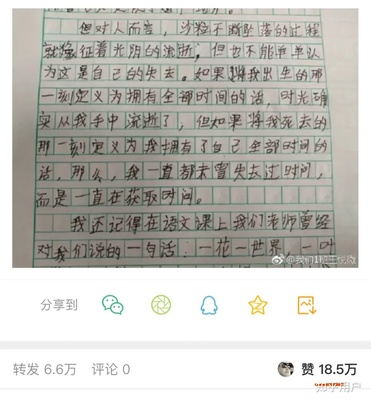 但对人而言，沙粒不断坠落的过程
就象征着光阴的流逝；但也不能单单认
为这是自己的失去。如果将我出生的那
一刻定义为拥有全部时间的话，时光确
实从我手中流逝了，但如果将我死去的
那一刻定义为我拥有了自己全部时间的
话，那么，我一直都未曾失去过时间，
而是一直在获取时间。
我还记得在语文课上我们老师曾经
对我们说的一句话：一花一世界，一叶
@我们1班王悦微
分享到
转发 6.6万 评论 0 赞 18.5万
知乎用户